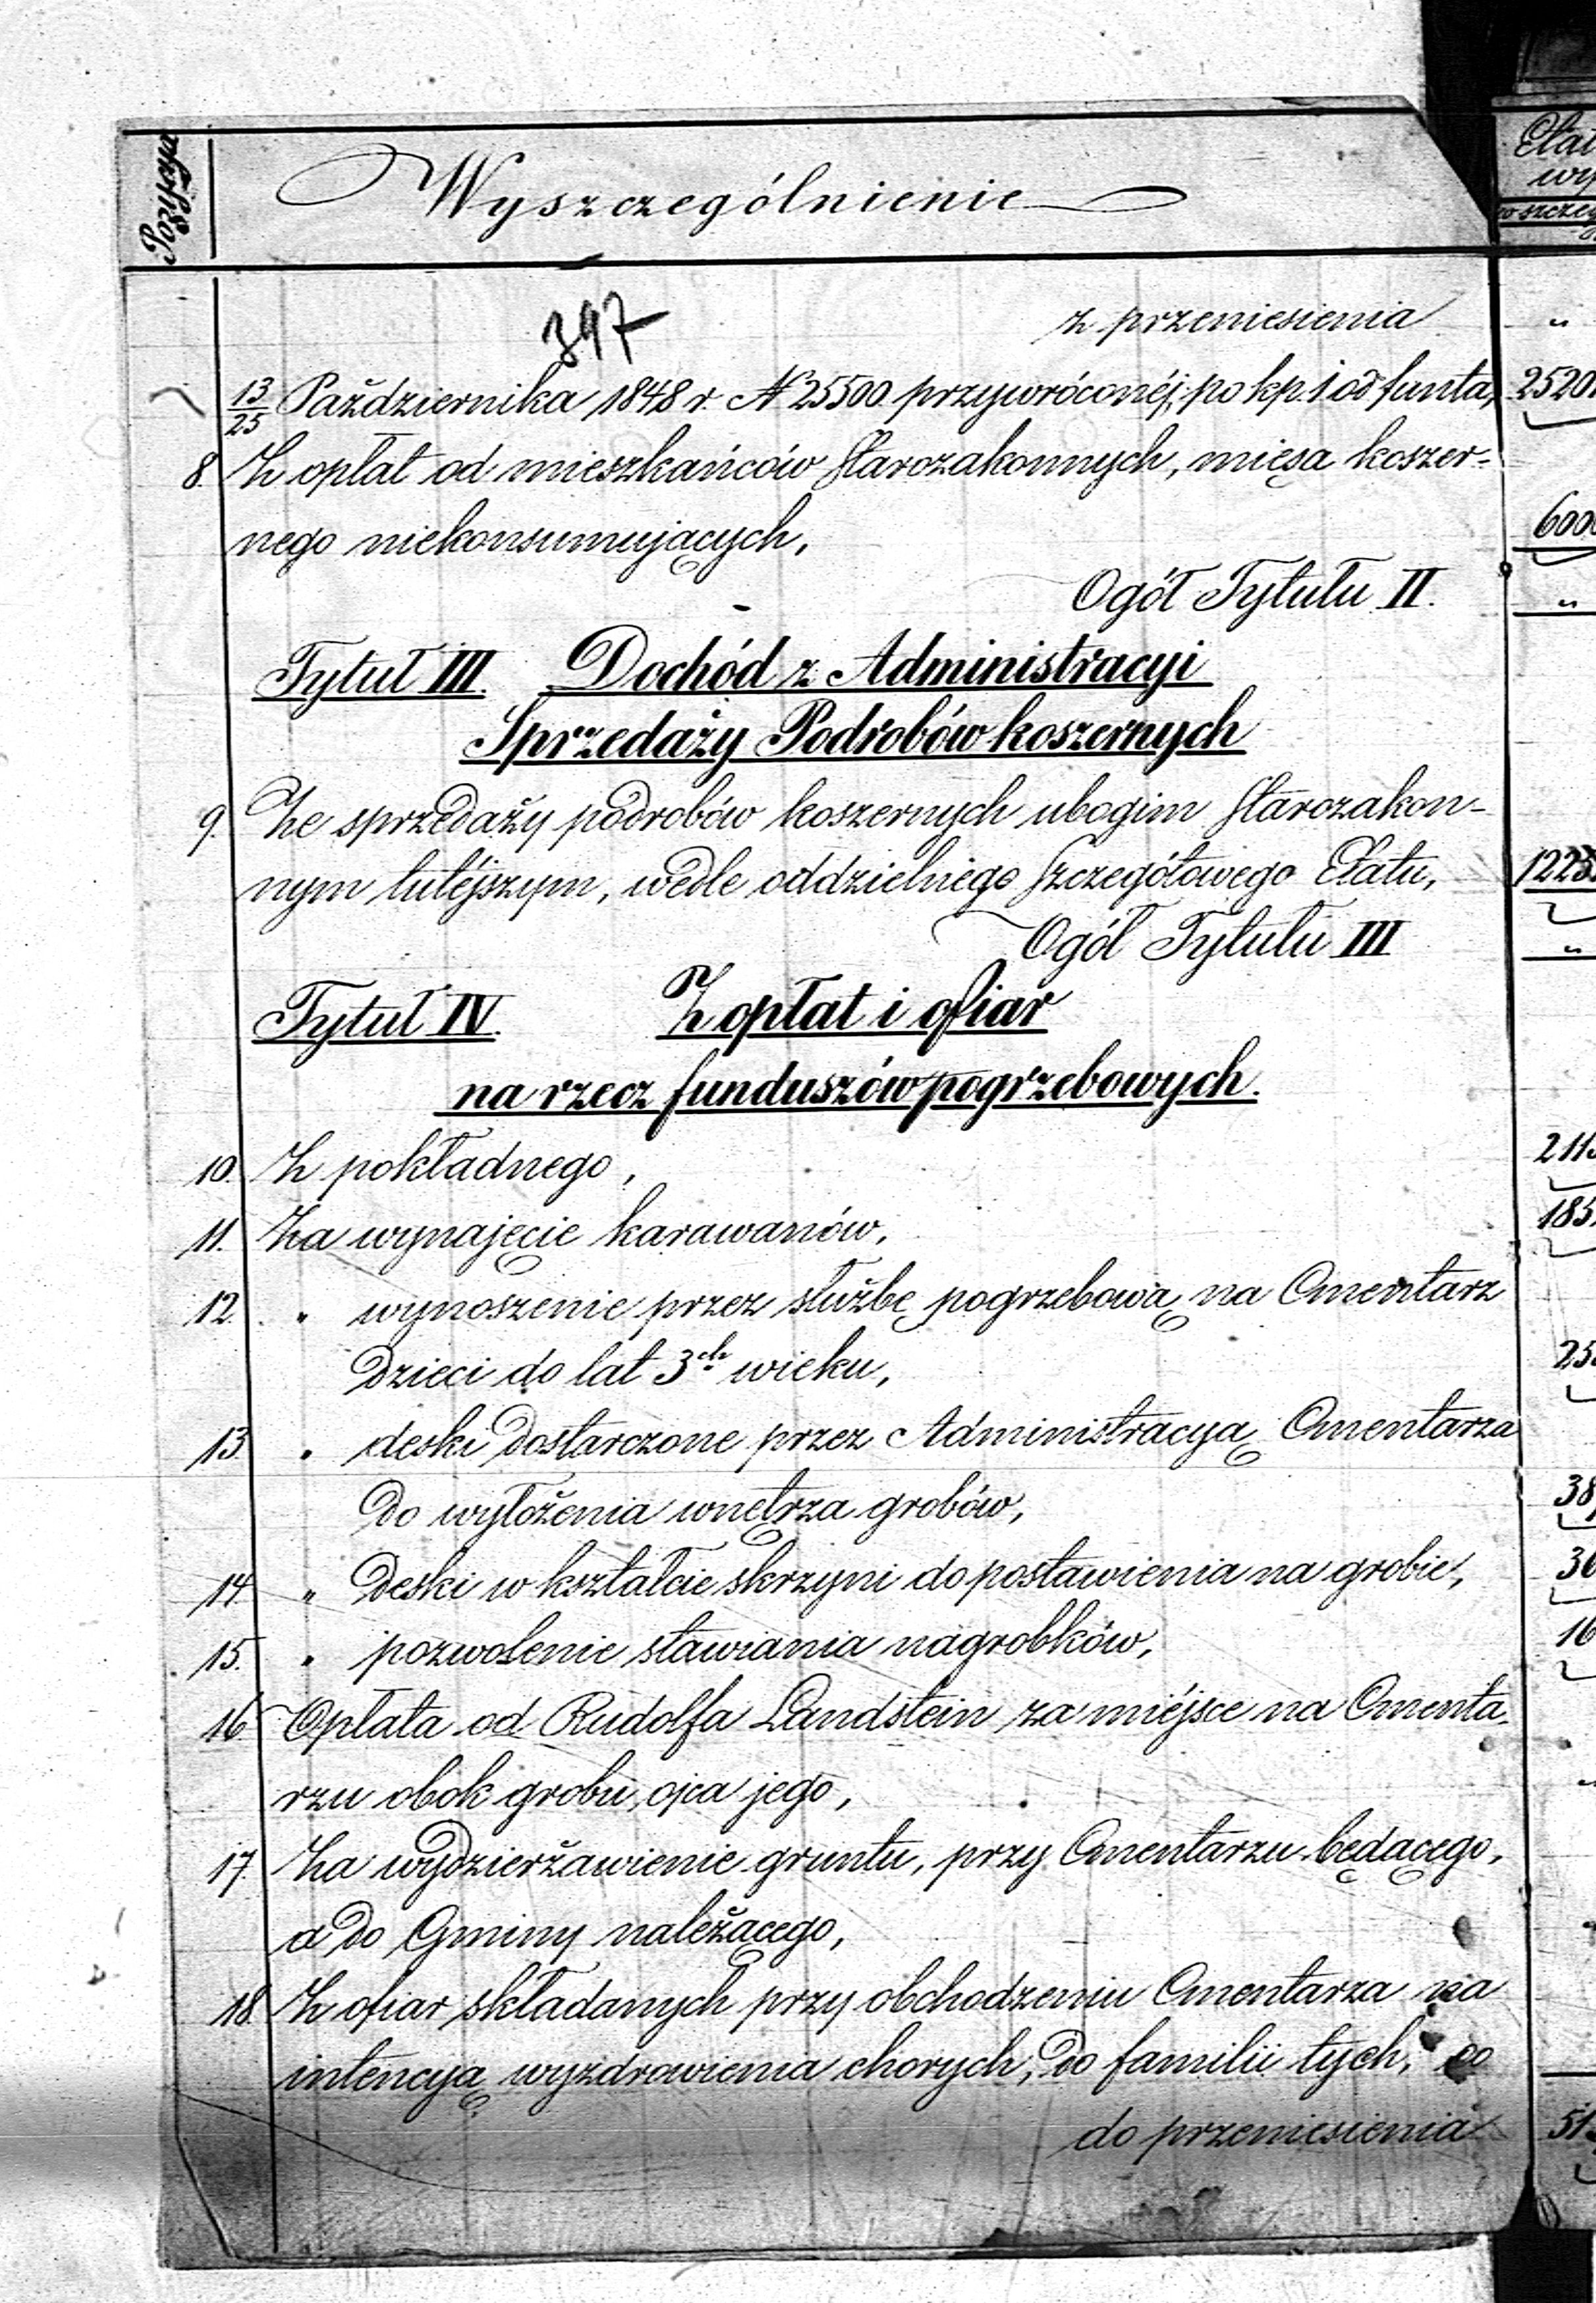 Pozycya
Wyszczególnienie
397
z przeniesienia
13/25 Października 1848 r. № 25500 przywróconéj, po kp. 1 od funta, 2520
8. Z opłat od mieszkańców starozakonnych, mięsa koszer-
nego niekonsumujących, 6000
Ogół Tytułu II. "
Tytuł III. Dochód z Administracyi
Sprzedaży Podrobów koszernych
9. Ze sprzedaży podrobów koszernych ubogim starozakon-
nym tutéjszym, wedle oddzielnego szczegółowego Etatu,
Ogół Tytułu III "
Tytuł IV. Z opłat i ofiar
na rzecz funduszów pogrzebowych.
10. Z pokładnego,
11. Za wynajęcie karawanów, 185
12. " wynoszenie przez służbę pogrzebową na Cmentarz
dzieci do lat 3ch wieku, 25
13. " deski dostarczone przez Administracyą Cmentarza
do wyłożenia wnętrza grobów, 38
14. " deski w kształcie skrzyni do postawienia na grobie,
15. " pozwolenie stawiania nagrobków, 16
16. Opłata od Rudolfa Landstein za miéjsce na Cmenta-
rzu obok grobu ojca jego,
17. Za wydzierżawienie gruntu, przy Cmentarzu będącego,
a do Gminy należącego,
18. Z ofiar składanych przy obchodzeniu Cmentarza na
intencyą wyzdrowienia chorych, do familii tych, co
do przeniesienia 51